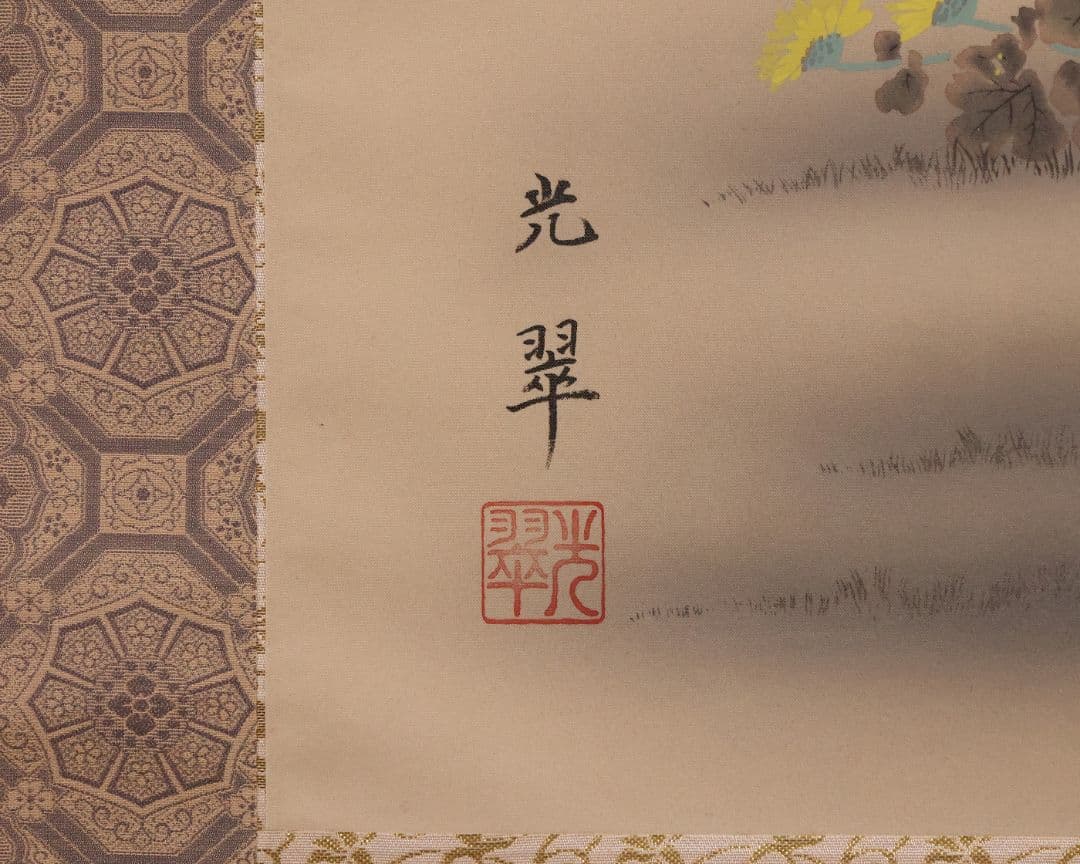 光翠
光翠